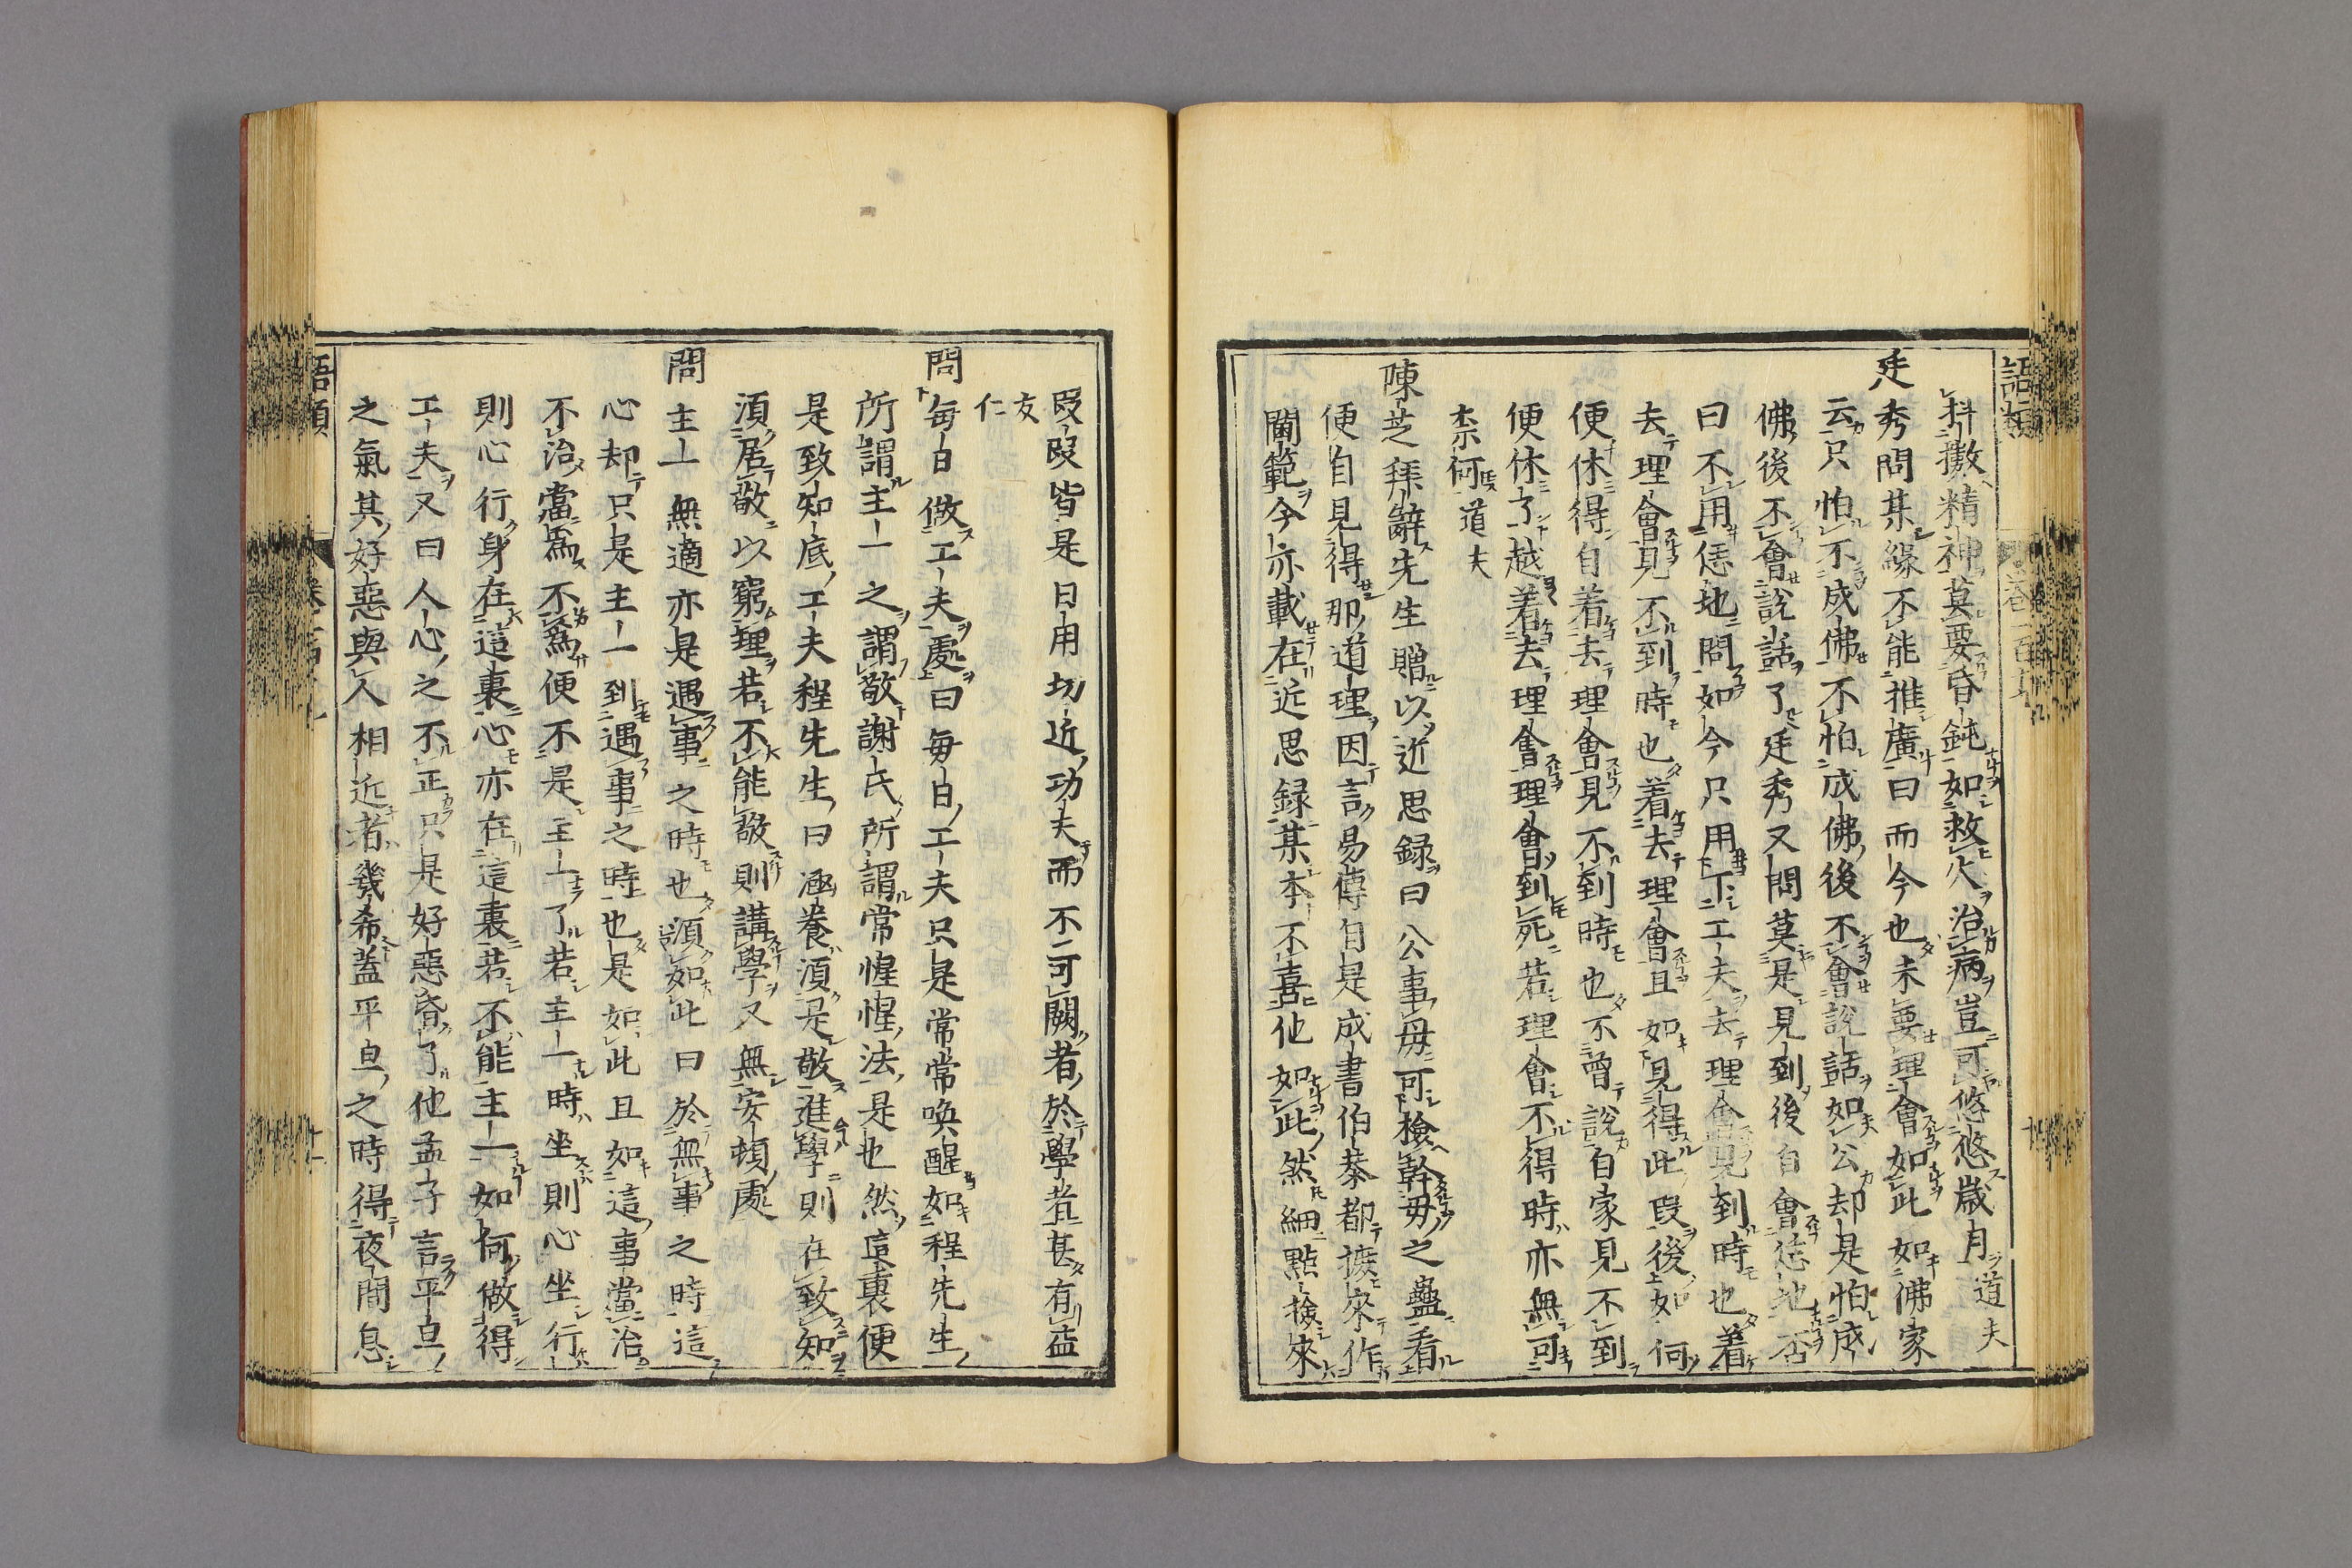 語類
抖擻精神莫要昏鈍如救火治病豈可悠悠歲月道夫
廷秀問某緣不能推廣曰而今也未要理會如此如佛家
云只怕不成佛不怕成佛後不會說話如公却是怕成
佛後不會說話了廷秀又問莫是見到後自會恁地否
曰不用恁地問如今只用下工夫去理會見到時也着
去理會見不到時也着去理會且如見得此段後如何
便休得自着去理會見不到時也不曾說自家見不到
便休了越着去理會理會到死若理會不得時亦無可
柰何道夫
陳芝拜辭先生贈以近思錄曰公事母可檢幹母之蠱看
便自見得那道理因言易傳自是成書伯恭都摭來作
閫範今亦載在近思錄某本不喜他如此然細點檢來
段段皆是日用切近功夫而不可闕者於學者甚有益
友仁
問每日做工夫處曰每日工夫只是常常喚醒如程先生
所謂主一之謂敬謝氏所謂常惺惺法是也然這裏便
是致知底工夫程先生曰涵養須是敬進學則在致知
須居敬以窮理若不能敬則講學又無安頓處
問主一無適亦是遇事之時也須如此曰於無事之時這
心却只是主一到遇事之時也是如此且如這事當治
不治當爲不爲便不是主一了若主一時坐則心坐行
則心行身在這裏心亦在這裏若不能主一如何做得
工夫又曰人心之不正只是好惡昏了他孟子言平旦
之氣其好惡與人相近者幾希蓋平旦之時得夜間息
語類